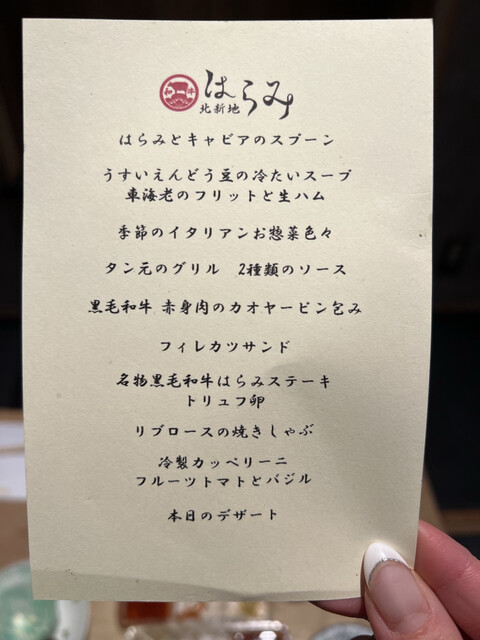 和 牛
はらみ
北新地
はらみとキャビアのスプーン
うすいえんどう豆の冷たいスープ
車海老のフリットと生ハム
季節のイタリアンお惣菜色々
タン元のグリル 2種類のソース
黒毛和牛 赤身肉のカオヤーピン包み
フィレカツサンド
名物黒毛和牛はらみステーキ
トリュフ卵
リブロースの焼きしゃぶ
冷製カッペリーニ
フルーツトマトとバジル
本日のデザート